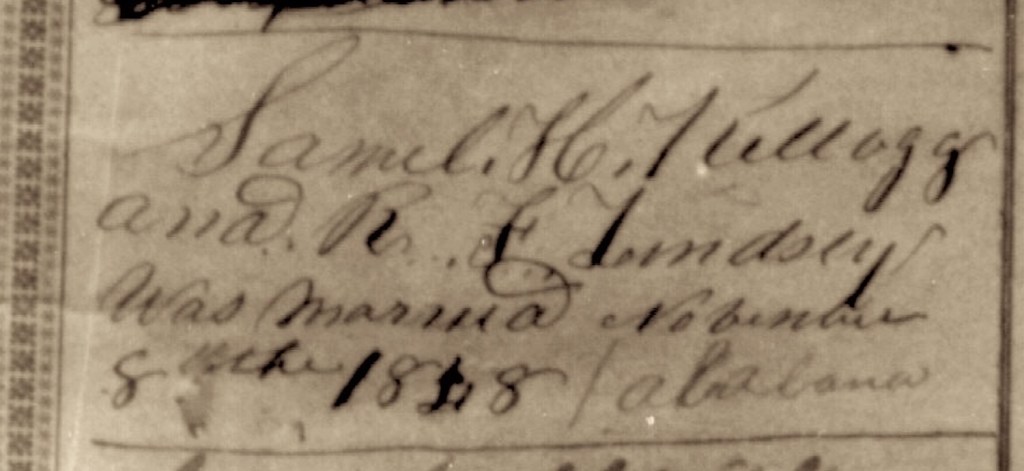 Samel. H. Kellogg
and. R. E. Lindsey
Was Married November
8 the 1848 / alabama